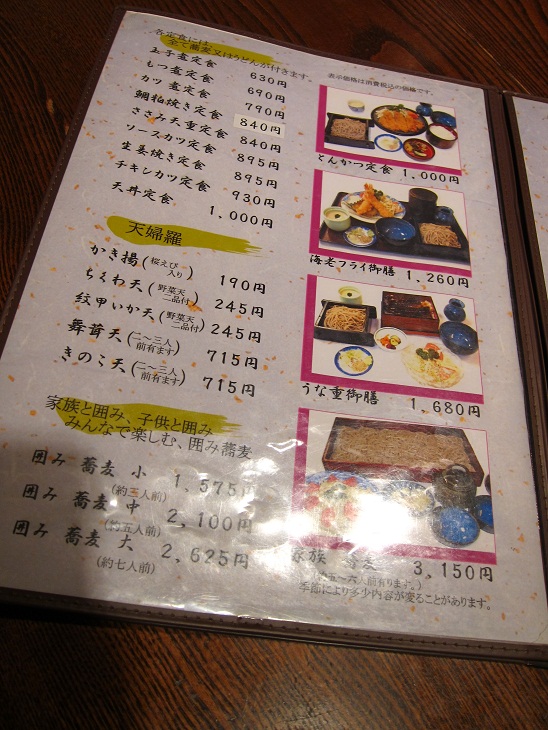 各定食には
全て蕎麦又はうどんが付きます。
表示価格は消費税込の価格です。
玉子煮定食 630円
もつ煮定食 690円
カツ煮定食 790円
鯛粕焼き定食 840円
ささみ天重定食 840円
ソースカツ定食 895円
生姜焼き定食 895円
チキンカツ定食 930円
天丼定食 1,000円
天婦羅
かき揚(桜えび入り) 190円
ちくわ天(野菜天二品付) 245円
紋甲いか天(野菜天二品付) 245円
舞茸天(二〜三人前有ます) 715円
きのこ天(二〜三人前有ます) 715円
家族と囲み、子供と囲み
みんなで楽しむ、囲み蕎麦
囲み 蕎麦 小 1,575円
(約三人前)
囲み 蕎麦 中 2,100円
(約五人前)
囲み 蕎麦 大 2,625円
(約七人前)
とんかつ定食 1,000円
海老フライ御膳 1,260円
うな重御膳 1,680円
家族 蕎麦 3,150円
五〜六人前有ります。)
季節により多少内容が変ることがあります。